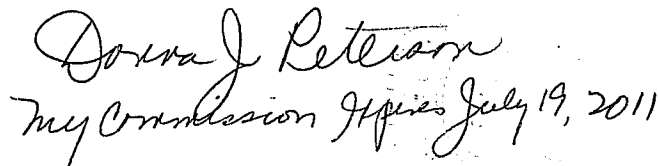 Donna J Peterson
My Commission Expires July 19, 2011